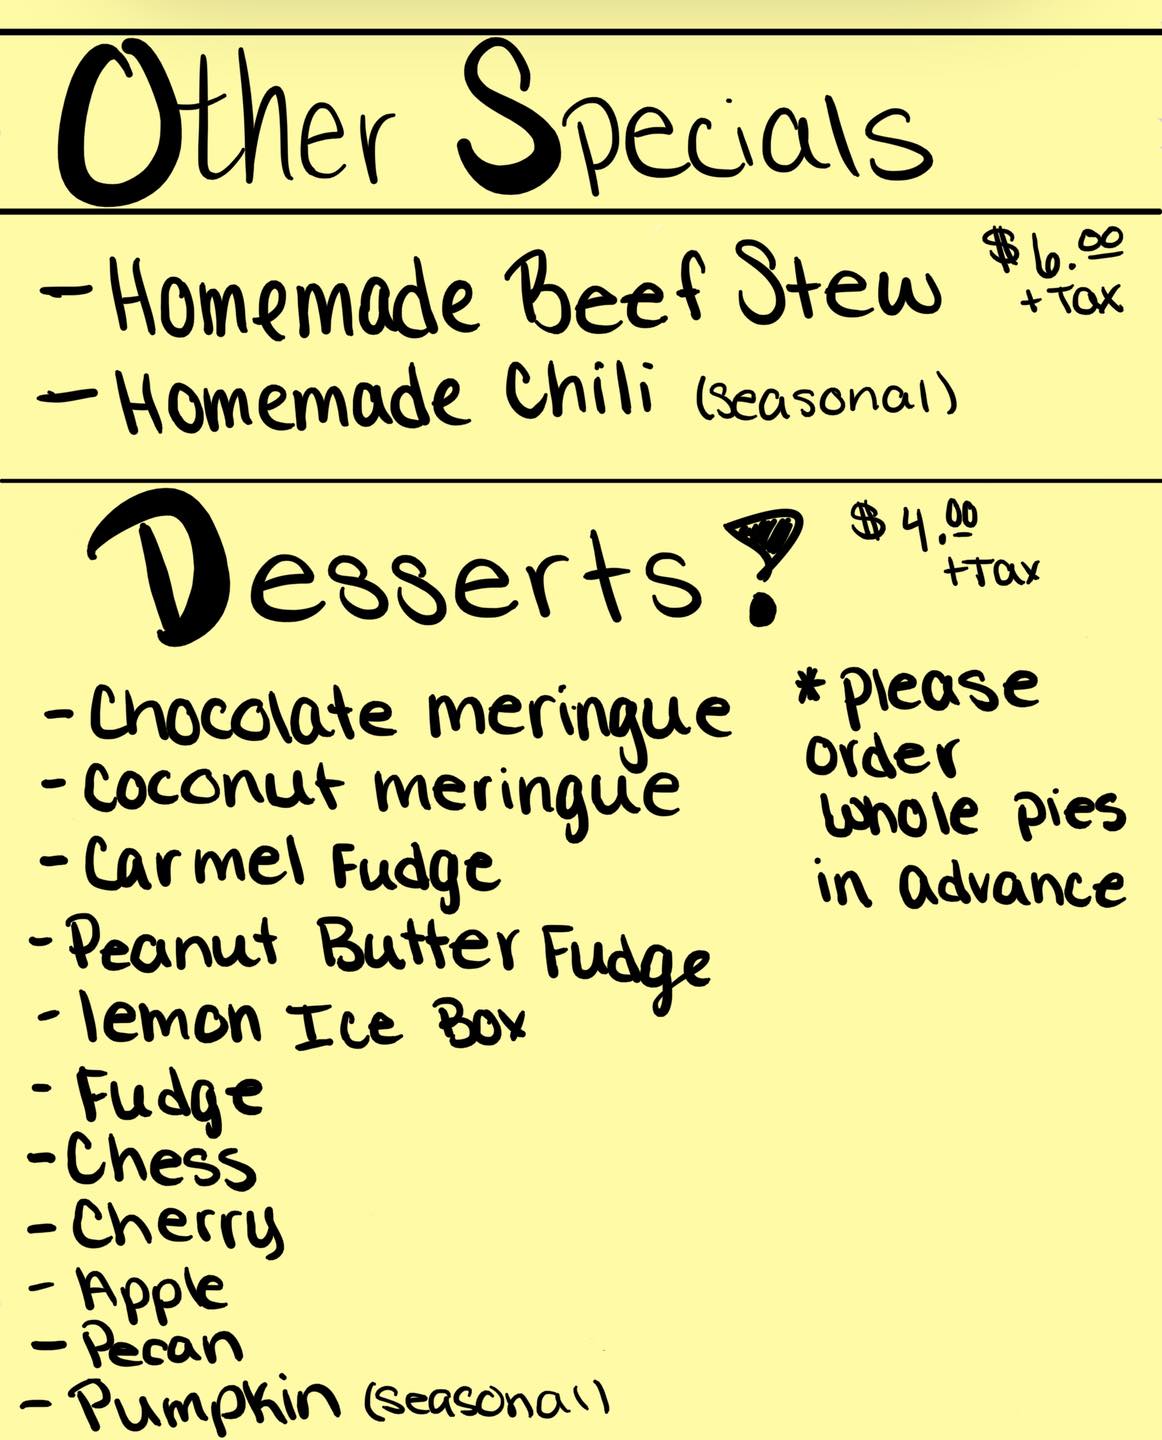 Other Specials
- Homemade Beef Stew $6.00 + Tax
- Homemade Chili (seasonal)
Desserts! $4.00 + Tax
- Chocolate meringue
- Coconut meringue
- Carmel Fudge
- Peanut Butter Fudge
- lemon Ice Box
- Fudge
- Chess
- Cherry
- Apple
- Pecan
- Pumpkin (seasonal)
* please
order
whole pies
in advance